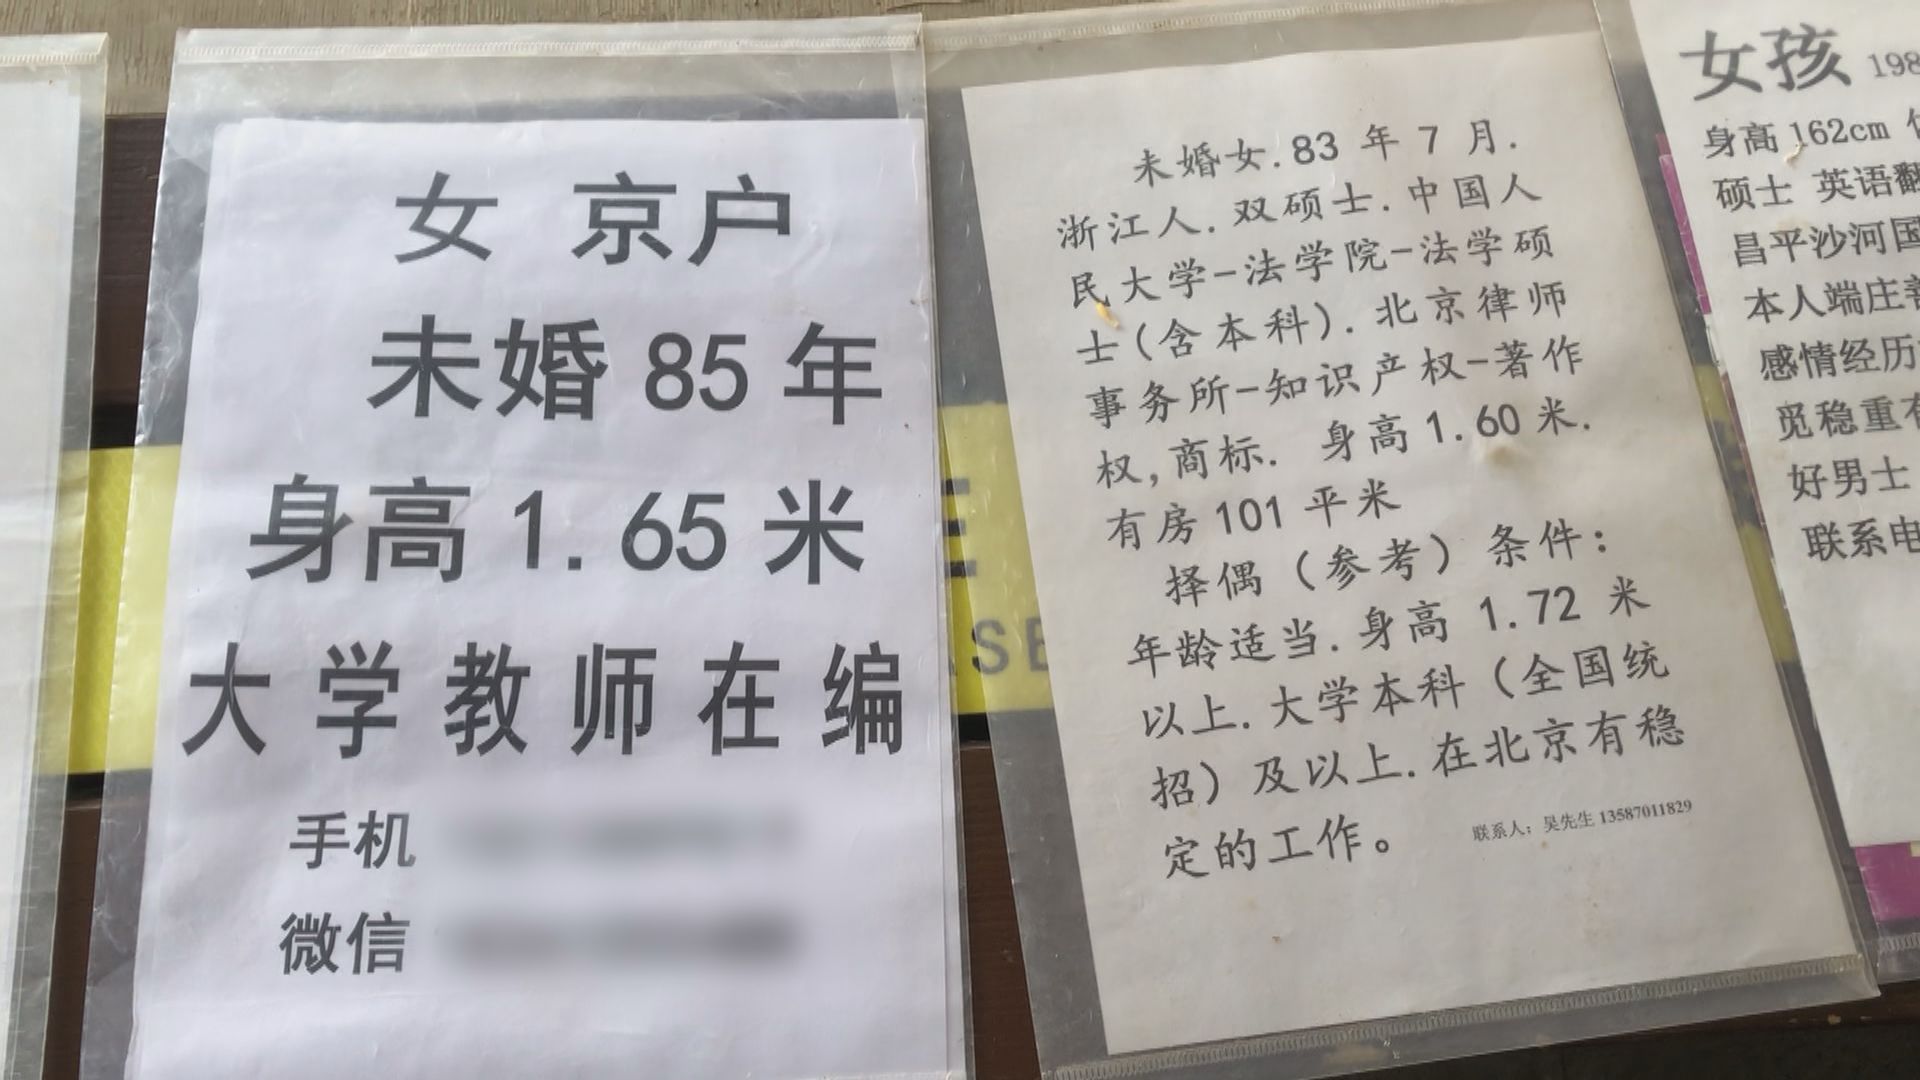 女 京户
未婚 85 年
身高 1.65 米
大学教师在编
手机
微信
未婚女.83 年 7 月.
浙江人.双硕士.中国人
民大学-法学院-法学硕
士(含本科).北京律师
事务所-知识产权-著作
权,商标. 身高 1.60 米.
有房 101 平米
择偶（参考）条件：
年龄适当.身高 1.72 米
以上.大学本科（全国统
招）及以上.在北京有稳
定的工作。
联系人：吴先生 13587011829
女孩 198
身高 162cm
硕士 英语翻
昌平沙河国
本人端庄善
感情经历
觅稳重有
好男士
联系电
ASE